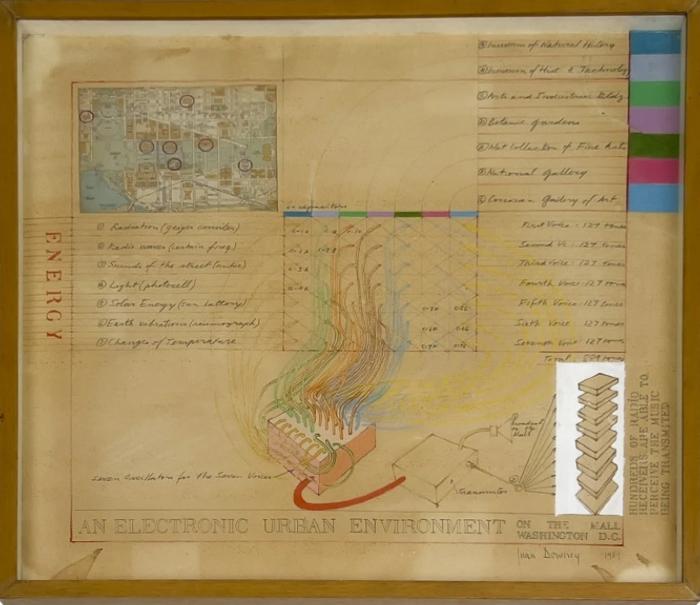 ① Museum of Natural History
② Museum of Hist. & Technology
③ Arts and Industries Bldg.
④ Botanic gardens
⑤ Nat Collection of Fine Arts
⑥ National Gallery
⑦ Corcoran Gallery of Art
ENERGY
① Radiation (geiger counter)
② Radio waves (certain freq)
③ Sounds of the street (audio)
④ Light (photocell)
⑤ Solar Energy (sun battery)
⑥ Earth vibrations (seismograph)
⑦ Changes of Temperature
First Voice: 127 tones
Second Vc: 127 tones
Third Voice: 127 tones
Fourth Voice: 127 tones
Fifth Voice: 127 tones
Sixth Voice 127 tones
Seventh Voice: 127 tones
Total 889 tones
seven oscillators for the Seven Voices
transmitter
Broadcast
on the
Mall
HUNDREDS OF RADIO
RECEIVERS ARE ABLE TO
PERCEIVE THE MUSIC
BEING TRANSMITED
AN ELECTRONIC URBAN ENVIRONMENT
ON THE MALL
WASHINGTON D.C.
Juan Downey 1969